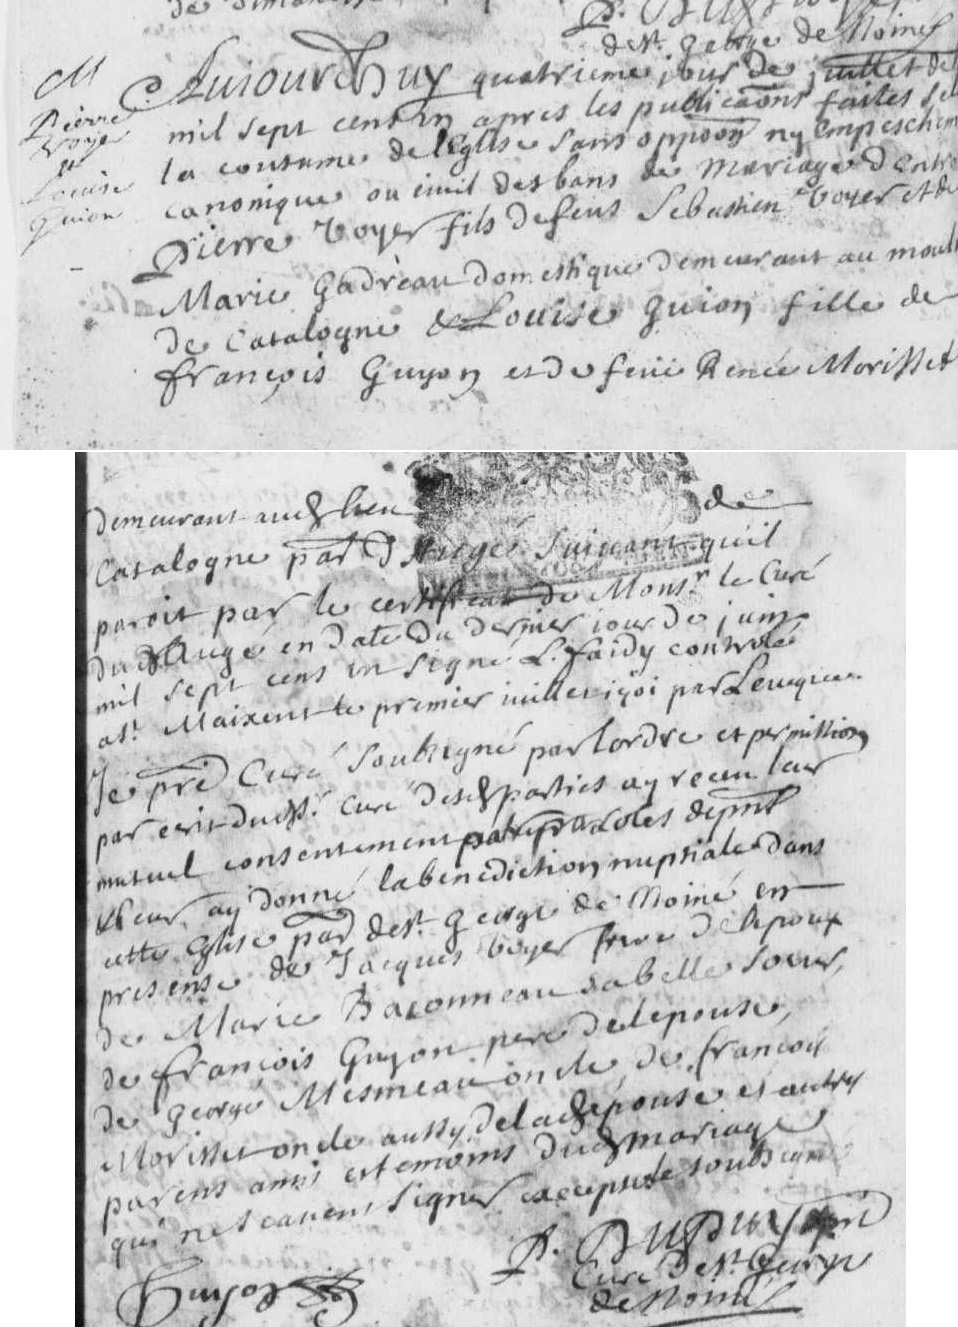 P. Dupuy
de St. George de Noiné
M
Pierre
Voyer
et
Louise
Guion
Aujourdhuy quatrieme jour de juillet de
mil sept cent un apres les publicaõns faites se
la coutume de leglise sans oppoõn ny empeschem
canonique ou civil des bans de mariage dentre
Pierre Voyer fils de feus Sebastien Voyer et de
Marie Gadreau domestique demeurant au moul
de Catalogne & Louise Guion fille de
françois Guyon et de feüe Renée Morisset
demeurant audt lieu de
Catalogne par d'Augé suivant qu'il
paroit par le certificat de Monsr. le Curé
dudt Augé en date du dernier jour de juin
mil sept cens un signé L. faidy controlé
a St. Maixent le premier juillet 1701 par
Je pre Curé soubsigné par lordre et permission
par ecrit dudt Sr. curé desdt parties ay receu leur
mutuel consentement par parolles de pnt
& leur ay donné la benediction nuptiale dans
cette Eglise par de St. George de Noiné en
presense de Jacques Voyer frere de lepoux
de Marie Baconneau sa belle soeur,
de françois Guyon pere de lepouse,
de george Mesmeau oncle, de françois
Morisset oncle aussy de ladt epouse et autres
parens amis et temoins dudt mariage
qui ne scavent signer excepté le soubsigné
P. Dupuy
Curé de St. George
de Noiné
Guyon